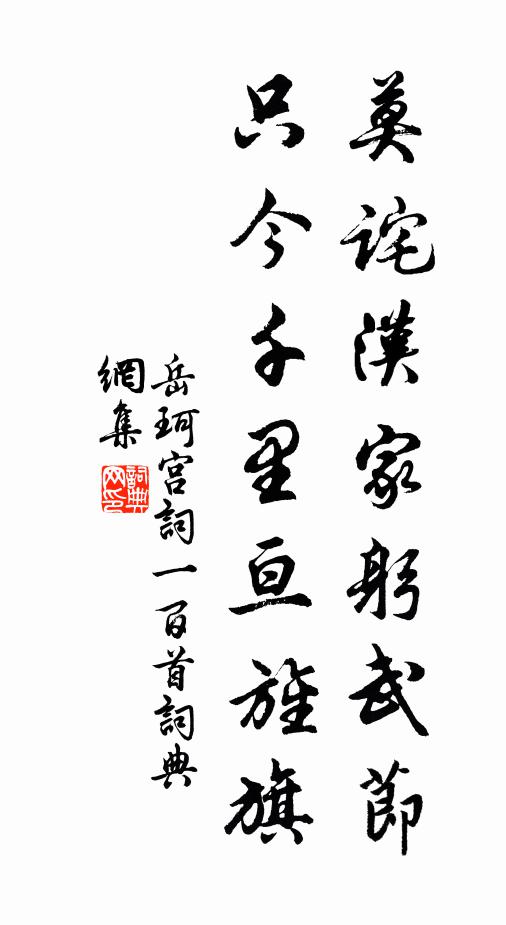 莫詫漢家躬武節
只今千里亘旌旗
岳珂宮詞一百首詞典
網集
詞典網印